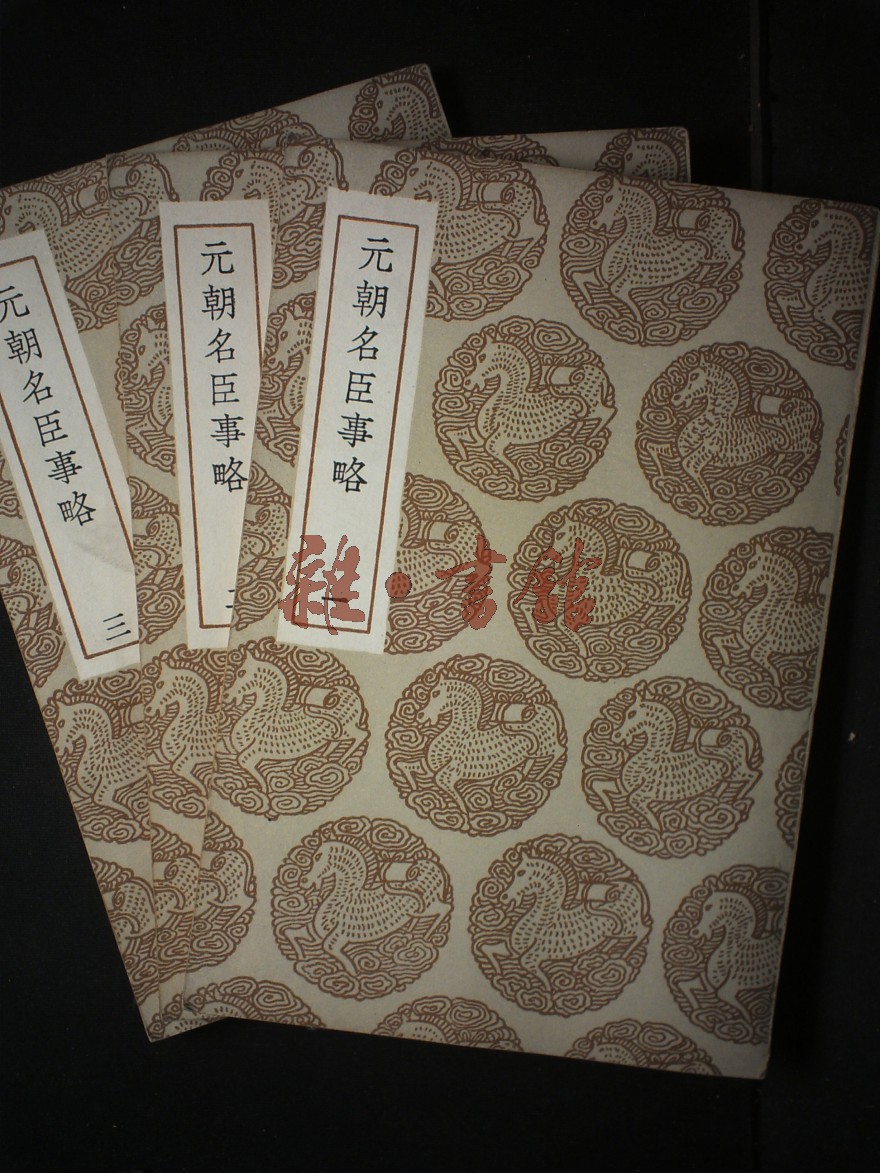 元朝名臣事略
一
元朝名臣事略
二
元朝名臣事略
三
雜·書館